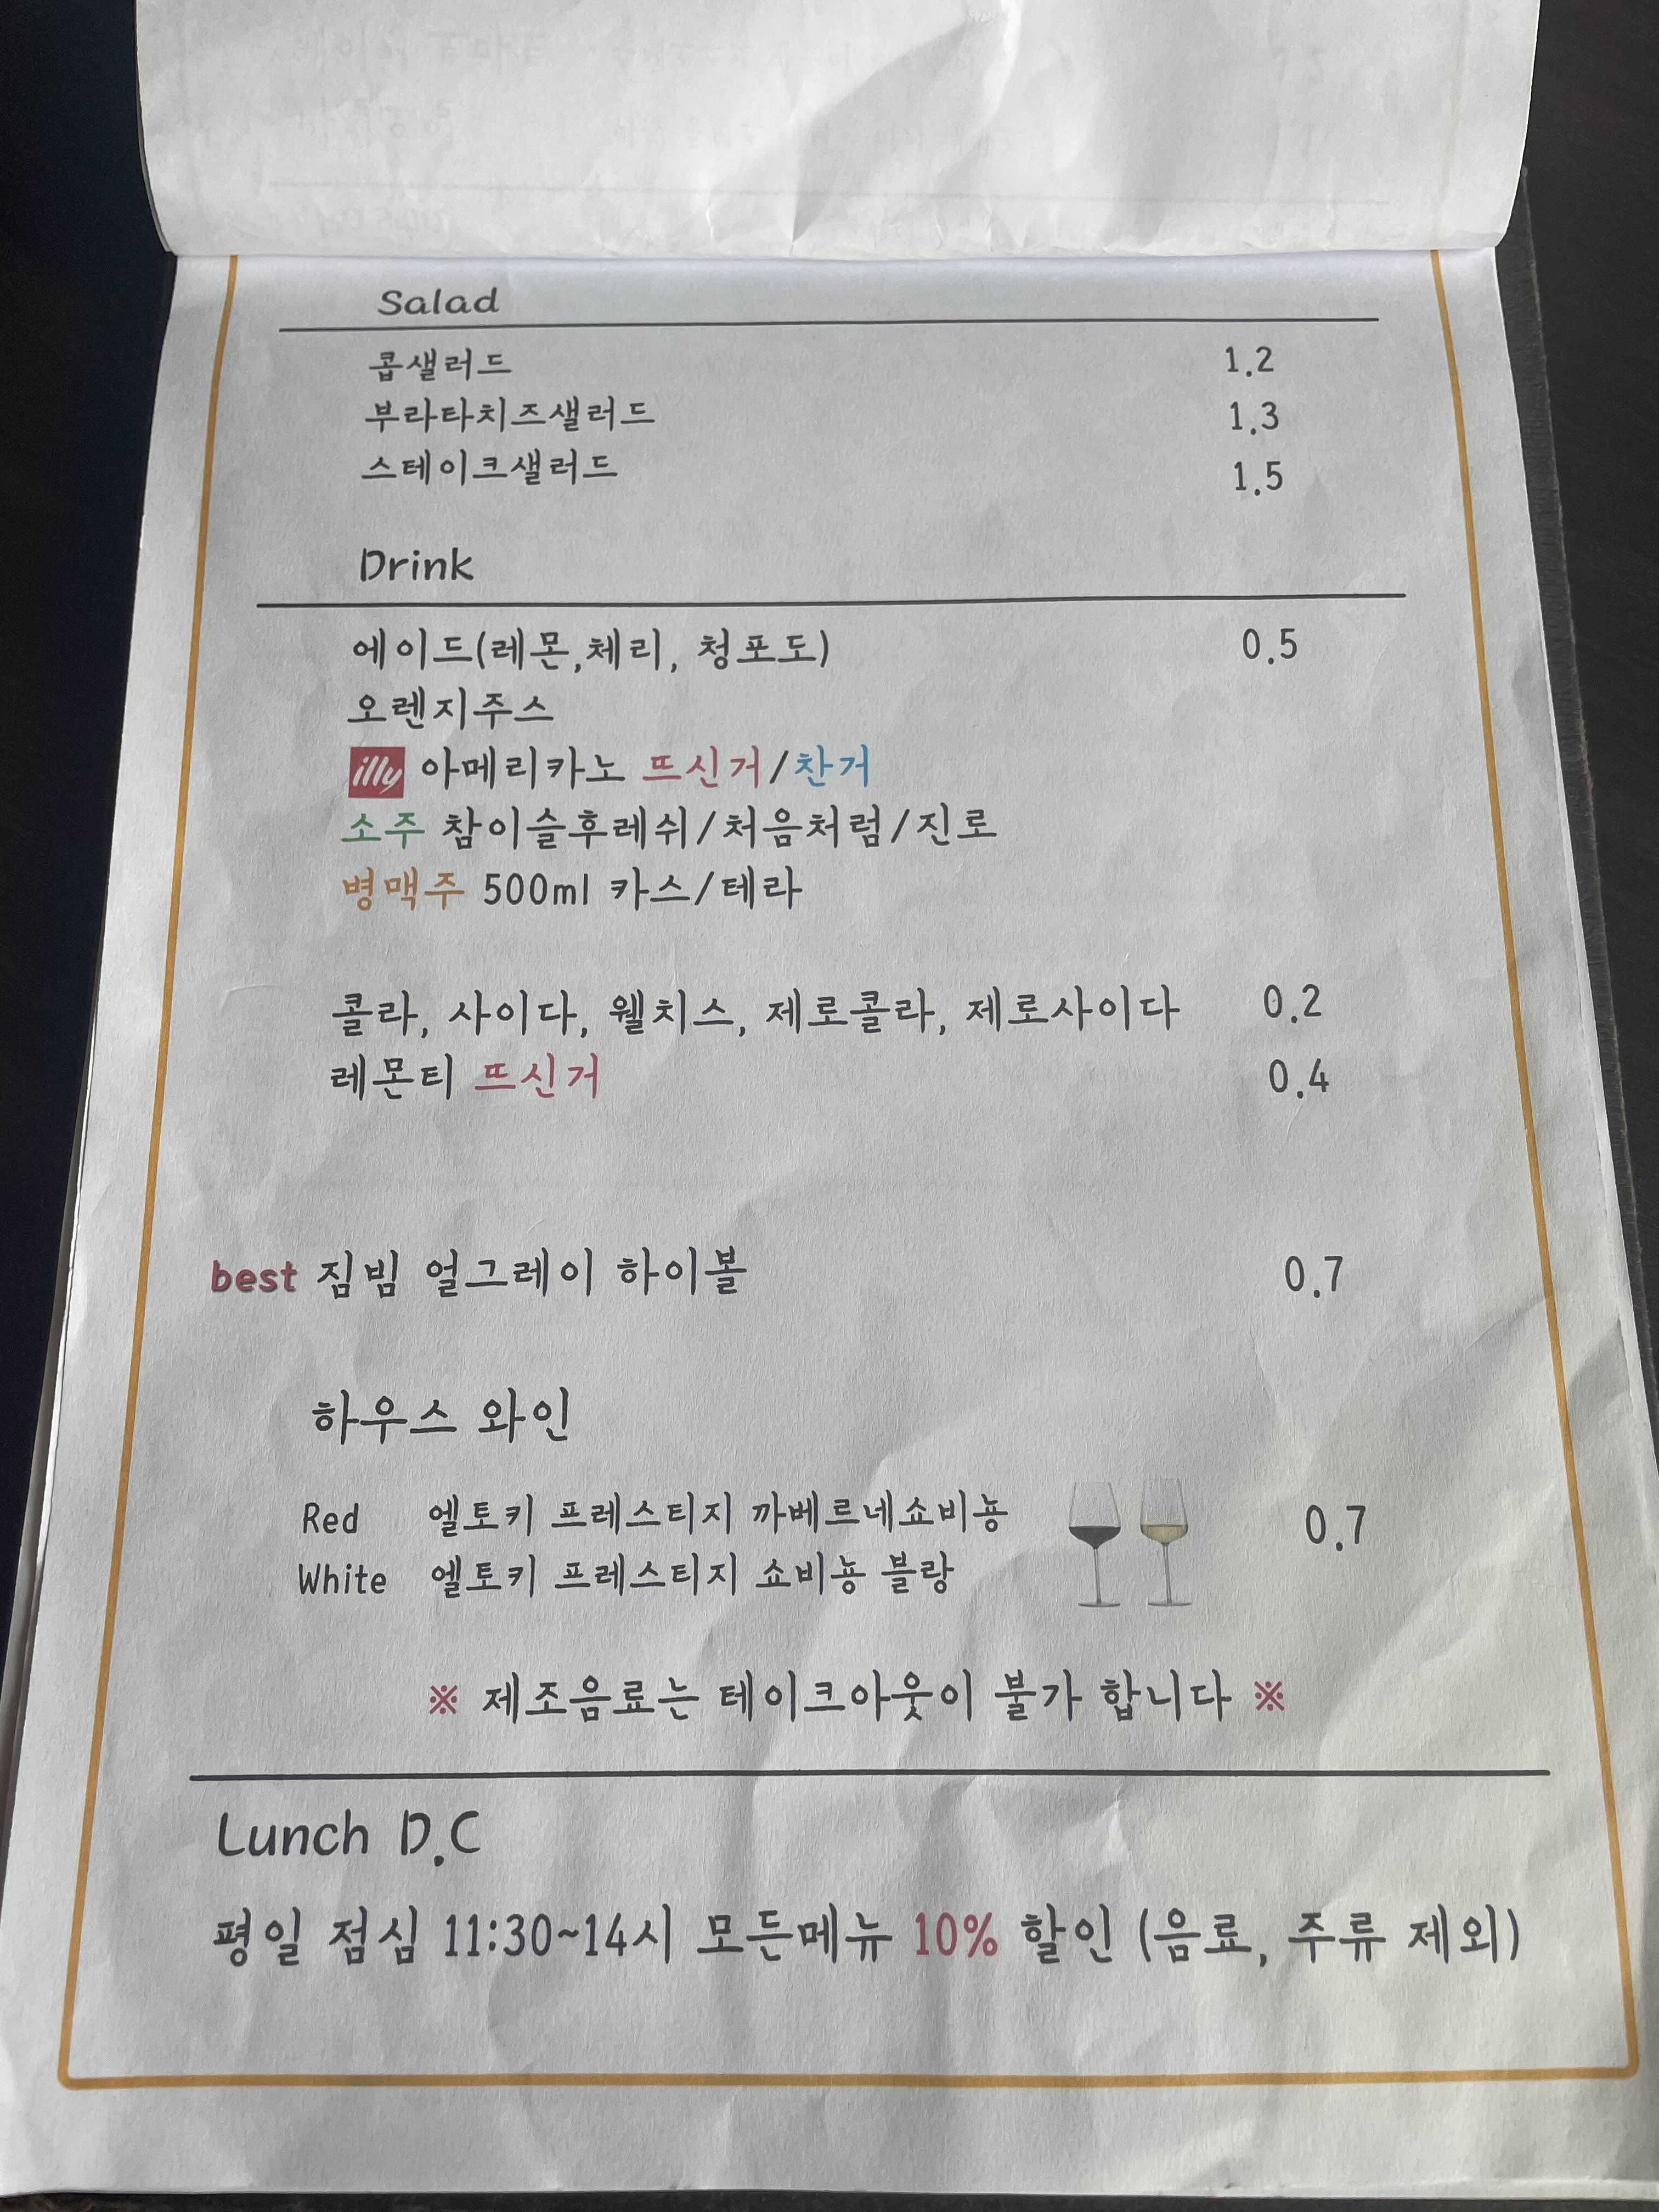 Salad
콥샐러드 1.2
부라타치즈샐러드 1.3
스테이크샐러드 1.5
Drink
에이드(레몬,체리, 청포도) 0.5
오렌지주스
illy 아메리카노 뜨신거/찬거
소주 참이슬후레쉬/처음처럼/진로
병맥주 500ml 카스/테라
콜라, 사이다, 웰치스, 제로콜라, 제로사이다 0.2
레몬티 뜨신거 0.4
best 짐빔 얼그레이 하이볼 0.7
하우스 와인
Red 엘토키 프레스티지 까베르네쇼비뇽 0.7
White 엘토키 프레스티지 쇼비뇽 블랑
※ 제조음료는 테이크아웃이 불가 합니다 ※
Lunch D.C
평일 점심 11:30~14시 모든메뉴 10% 할인 (음료, 주류 제외)